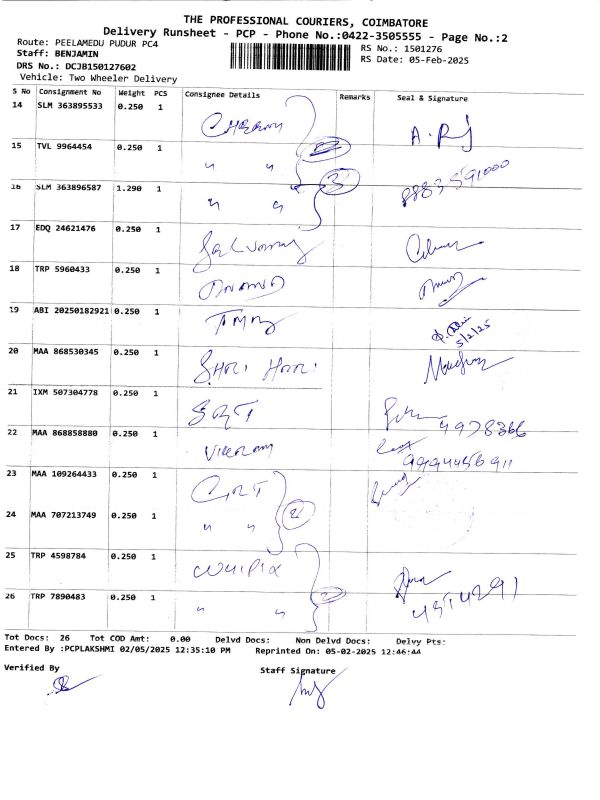 THE PROFESSIONAL COURIERS, COIMBATORE
Delivery Runsheet - PCP - Phone No.:0422-3505555 - Page No.:2
Route: PEELAMEDU PUDUR PC4
Staff: BENJAMIN
DRS No.: DCJB150127602
Vehicle: Two Wheeler Delivery
RS No.: 1501276
RS Date: 05-Feb-2025
S No Consignment No Weight PCS Consignee Details Remarks Seal & Signature
14 SLM 363895533 0.250 1
15 TVL 9964454 0.250 1 " "
16 SLM 363896587 1.290 1 " " 3 8883591000
17 EDQ 24621476 0.250 1
18 TRP 5960433 0.250 1
19 ABI 20250182921 0.250 1 5/2/25
20 MAA 868530345 0.250 1 SHRI HARI
21 IXM 507304778 0.250 1 4978366
22 MAA 868858880 0.250 1
23 MAA 109264433 0.250 1
24 MAA 707213749 0.250 1 " " 2
25 TRP 4598784 0.250 1
26 TRP 7890483 0.250 1 " "
Tot Docs: 26 Tot COD Amt: 0.00 Delvd Docs: Non Delvd Docs: Delvy Pts:
Entered By :PCPLAKSHMI 02/05/2025 12:35:10 PM Reprinted On: 05-02-2025 12:46:44
Verified By
Staff Signature